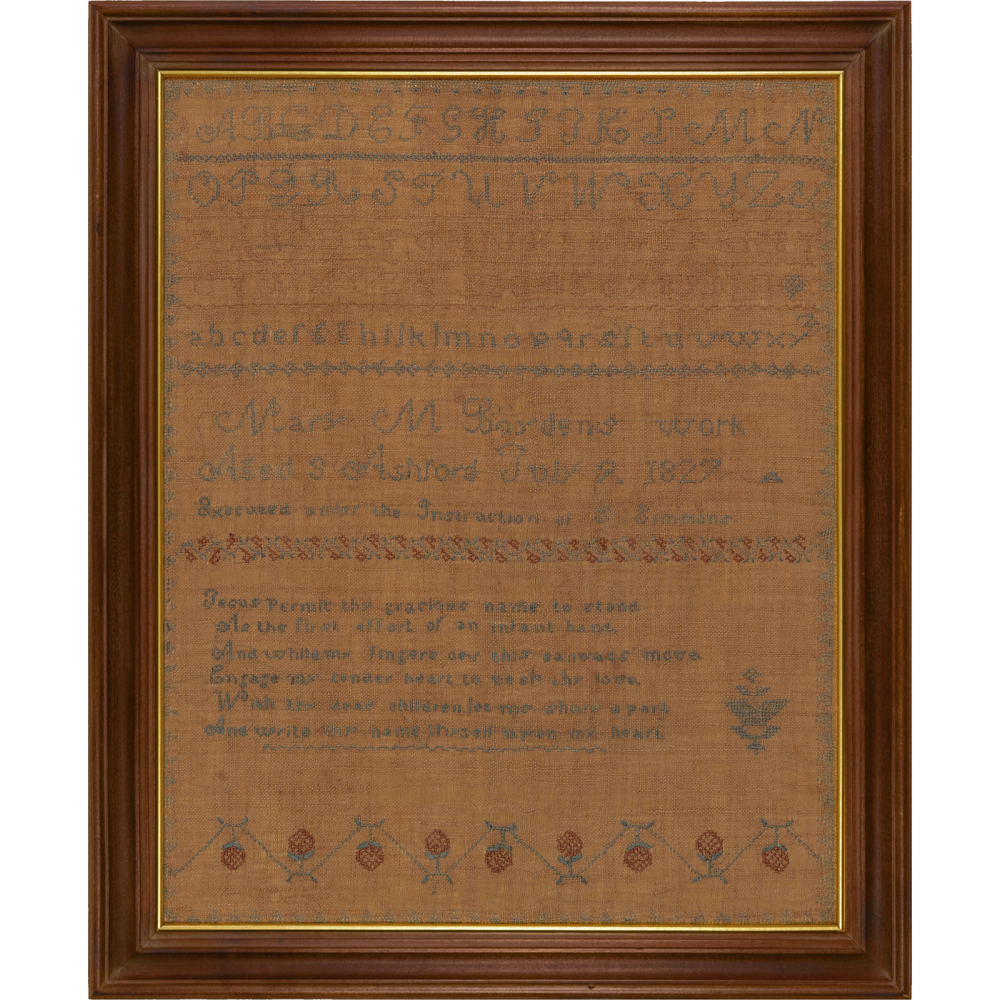 A B C D E F G H I J K L M N
O P Q R S T U V W X Y Z &
a b c d e f g h i j k l m n o p q r s ſ t u v w x y z
Mary M Bosdens work
Aged 8 Ashford July 9 1827
Executed under the Instruction of S Simmons
Jesus permit thy gracious name to stand
As the first effort of an infant hand,
And while my fingers oer this canvass move
Engage my tender heart to seek thy love,
With thy dear children let me share a part
And write thy name thyself upon my heart